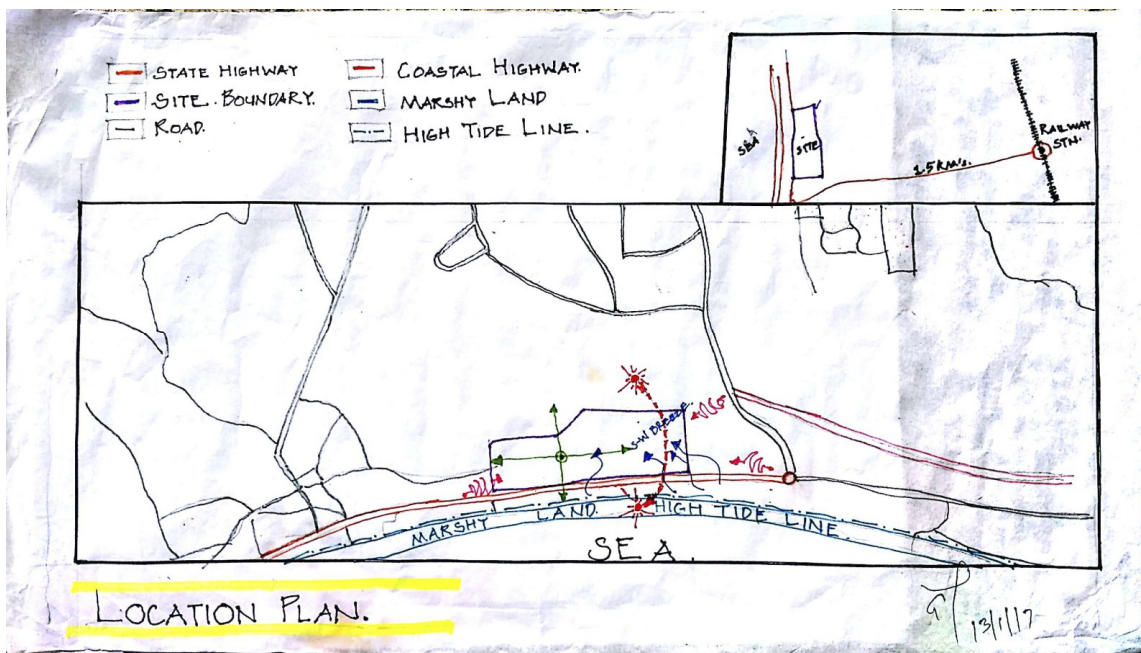 STATE HIGHWAY
SITE BOUNDARY.
ROAD.
COASTAL HIGHWAY.
MARSHY LAND
HIGH TIDE LINE.
SEA
SITE
1.5 KM's.
RAILWAY
STN.
S-W BREEZE
MARSHY LAND.
HIGH TIDE LINE
SEA.
LOCATION PLAN.
13/1/17